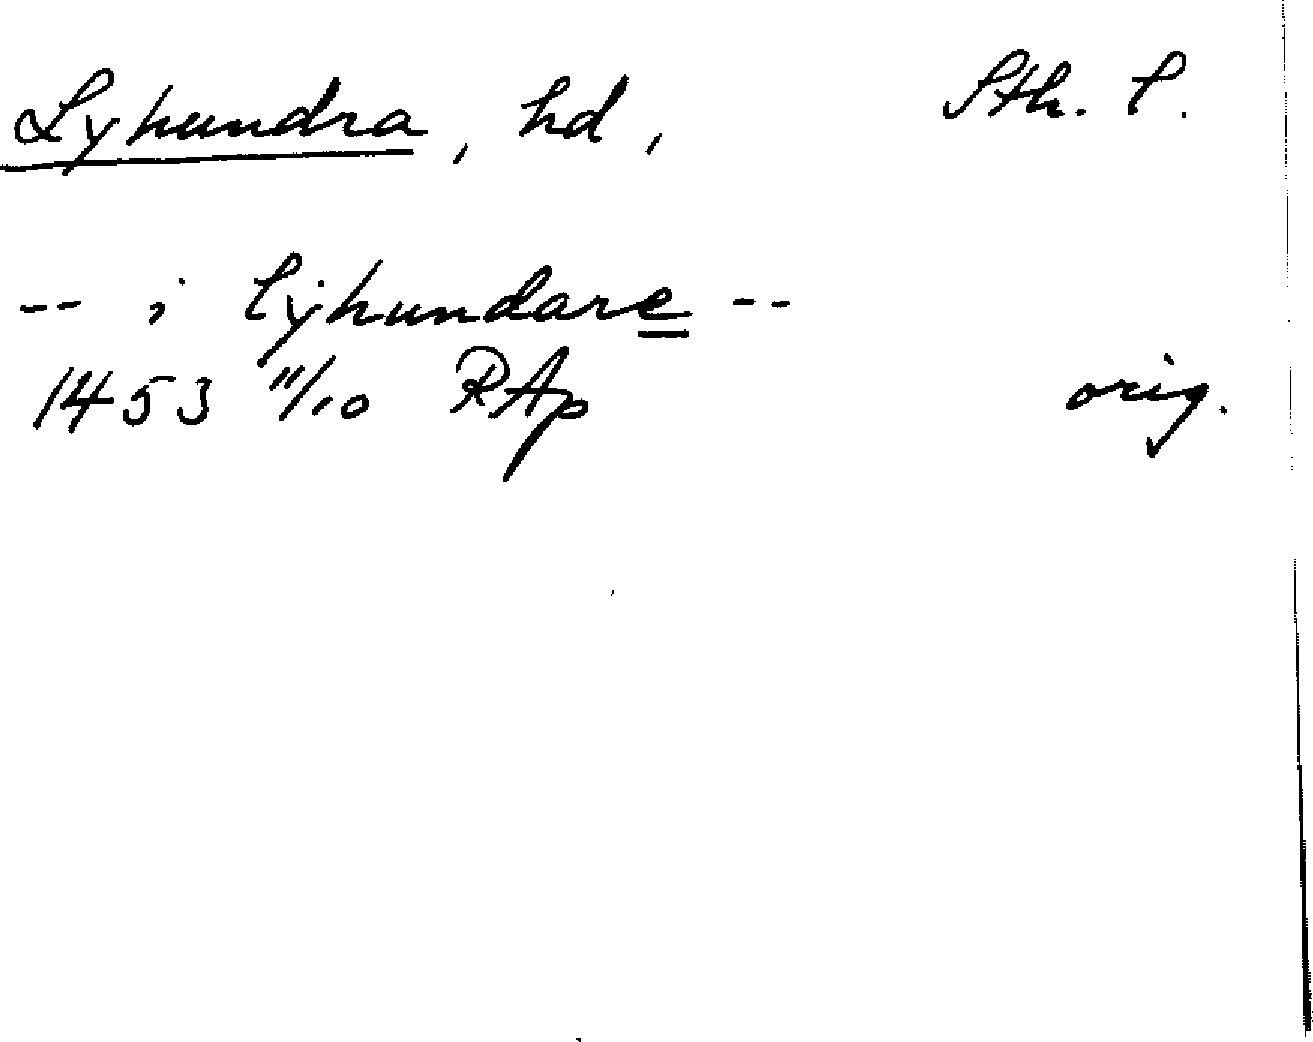 Lyhundra, hd, Sth. l.
-- i lyhundare --
1453 11/10 RAp orig.